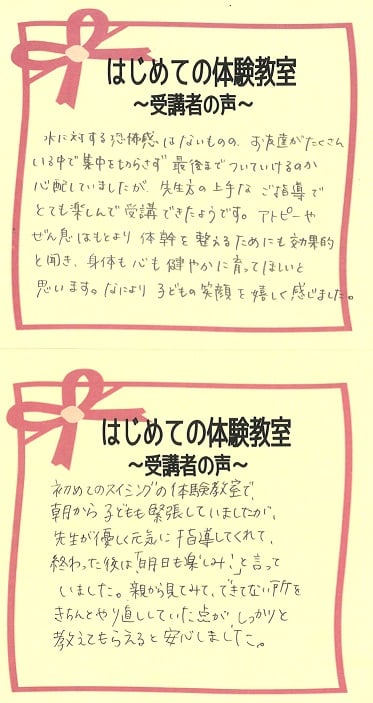 はじめての体験教室
～受講者の声～
水に対する恐怖感はないものの、お友達がたくさん
いる中で集中を切らさず最後までついていけるのか
心配していましたが、先生方の上手なご指導で
とても楽しんで受講できたようです。アトピーや
ぜん息はもとより体幹を整えるためにも効果的
と聞き、身体も心も健やかに育ってほしいと
思います。なにより子どもの笑顔を嬉しく感じました。
はじめての体験教室
～受講者の声～
初めてのスイミングの体験教室で、
朝から子どもも緊張していましたが、
先生が優しく元気に指導してくれて、
終わった後は「明日も楽しみ！」と言って
いました。親から見てみて、できてない所を
きちんとやり直ししていた点が、しっかりと
教えてもらえると安心しました。